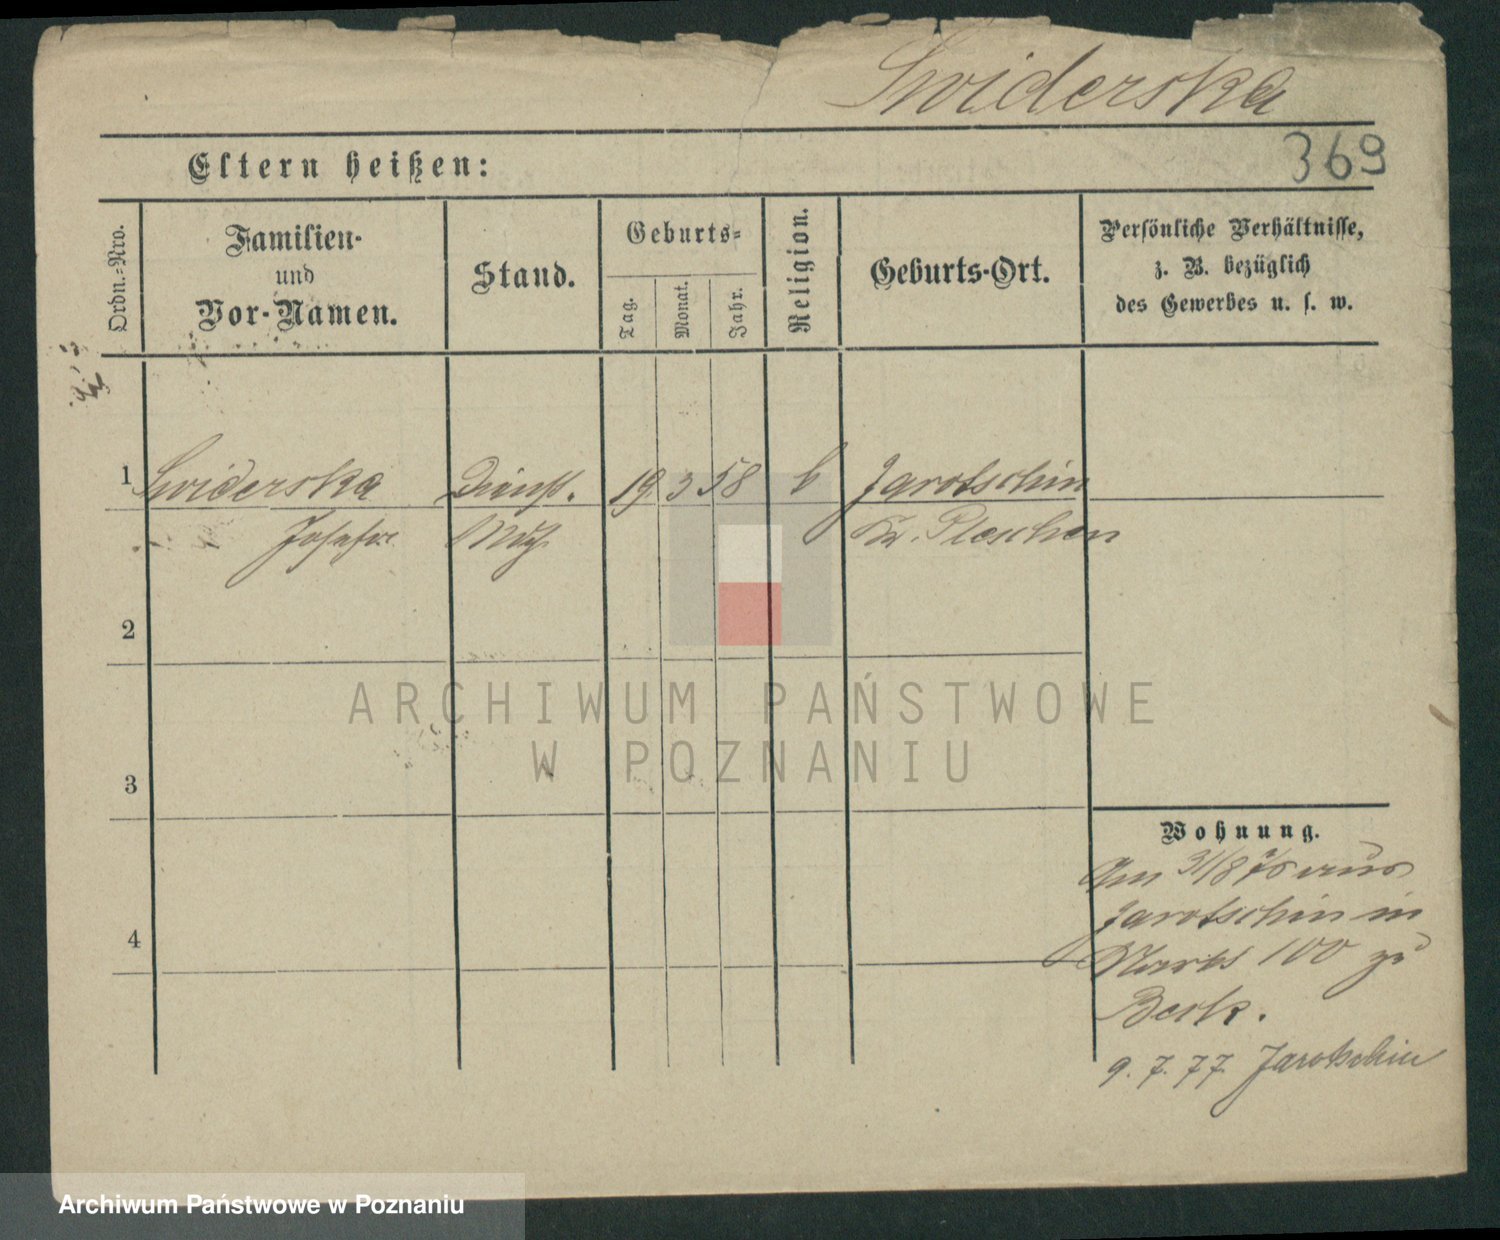 Swiderska
369
Eltern heißen:
Ordn.-Nro.
Familien-
und
Vor-Namen.
Stand.
Geburts-
Tag.
Monat.
Jahr.
Religion.
Geburts-Ort.
Persönliche Verhältnisse,
z. B. bezüglich
des Gewerbes u. s. w.
1 Swiderska Dienst. 19. 3 58 k Jarotschin
Josefa Kr. Pleschen
2
3
4
Wohnung.
Am 31/8 76 aus
Jarotschin in
Markt 100 zu
9. 7. 77. Jarotschin
ARCHIWUM PAŃSTWOWE
W POZNANIU
Archiwum Państwowe w Poznaniu